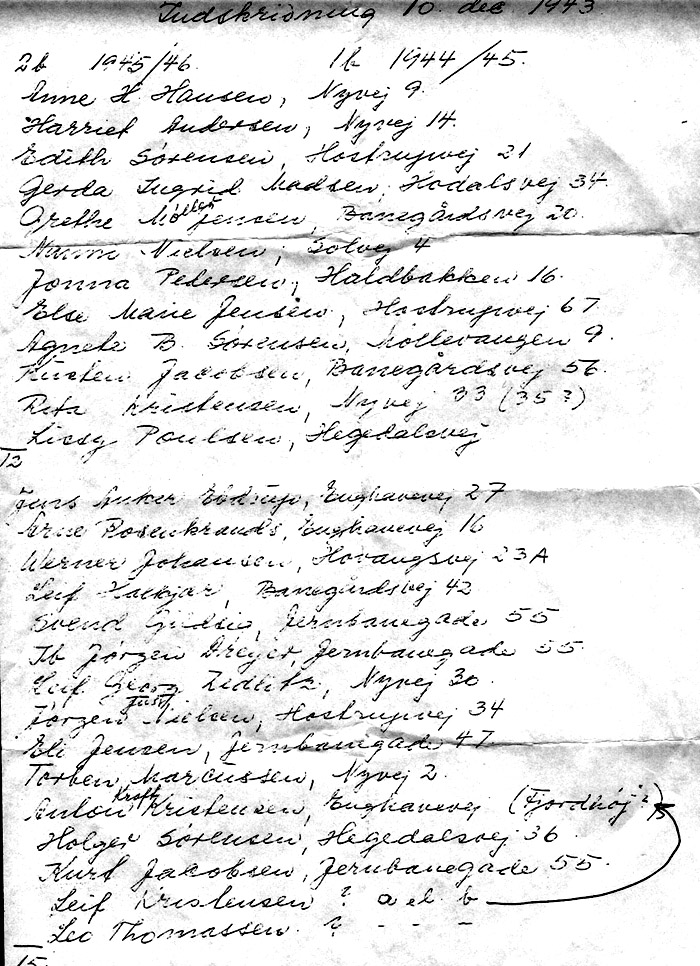 Indskrivning 10. dec 1943
2b 1945/46. 1b 1944/45.
Anne H. Hansen, Nyvej 9.
Harriet Andersen, Nyvej 14.
Edith Sørensen, Hostrupvej 21
Gerda Ingrid Madsen, Hodalsvej 34
Grethe Møller Jensen, Banegårdsvej 20.
Nanna Nielsen, Solvej 4
Jonna Pedersen, Haldbakken 16.
Else Marie Jensen, Hostrupvej 67
Agnete B. Sørensen, Møllevangen 9.
Kirsten Jacobsen, Banegårdsvej 56.
Rita Kristensen, Nyvej 33 (35?)
Lissy Poulsen, Hegedalsvej
12
Jens Anker Ebdrup, Enghavevej 27
Arne Rosenkrands, Enghavevej 16
Werner Johansen, Hovangsvej 23A
Leif Banegårdsvej 42
Svend Gildsig, Jernbanegade 55
Ib Jørgen Dreyer, Jernbanegade 55.
Leif Georg Zedlitz, Nyvej 30.
Jørgen Just Nielsen, Hostrupvej 34
Eli Jensen, Jernbanegade 47.
Torben Marcussen, Nyvej 2.
Anton Krogh Kristensen, Enghavevej (Fjordhøj?)
Holger Sørensen, Hegedalsvej 36.
Kurt Jacobsen, Jernbanegade 55.
Leif Kristensen ? a el. b
Leo Thomassen. ? - - -
15.